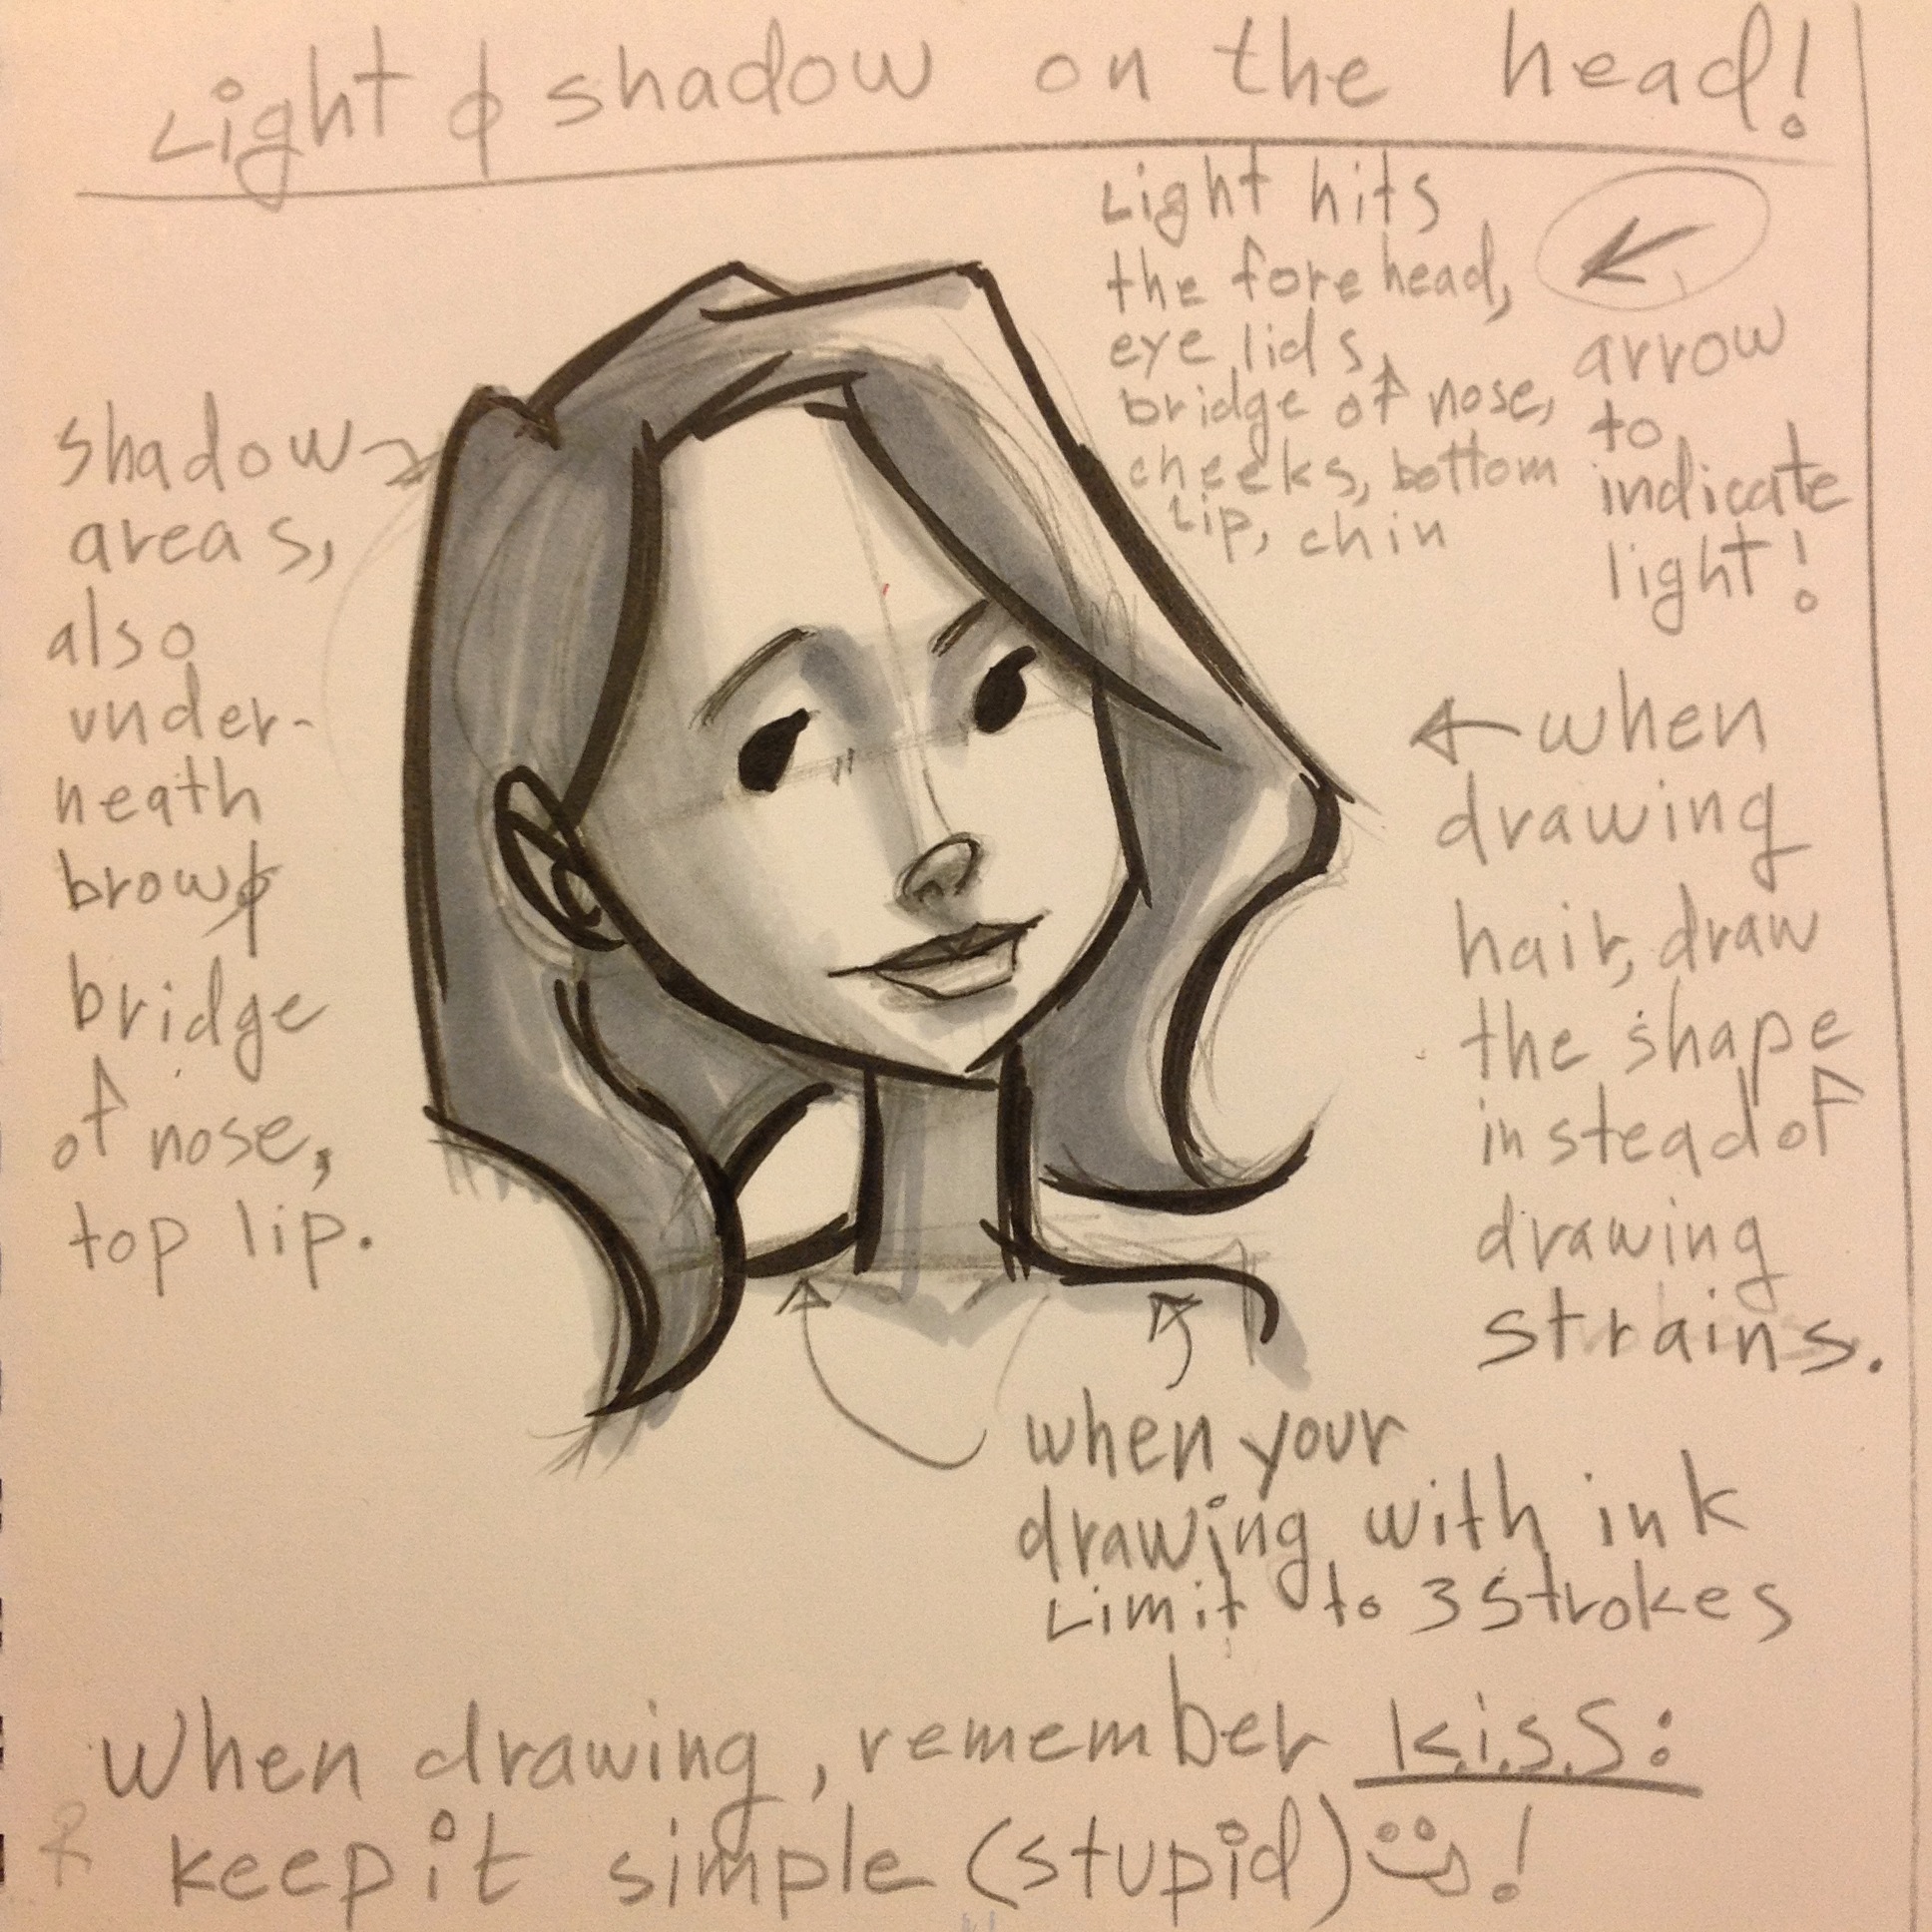 Light & shadow on the head!
Light hits
the forehead,
eye lids,
bridge of nose,
cheeks, bottom
Lip, chin
arrow
to
indicate
light!
shadow
areas,
also
under-
neath
brow &
bridge
of nose,
top lip.
when
drawing
hair, draw
the shape
instead of
drawing
strains.
when your
drawing with ink
Limit to 3 strokes
When drawing, remember k.i.s.s:
keep it simple (stupid) !